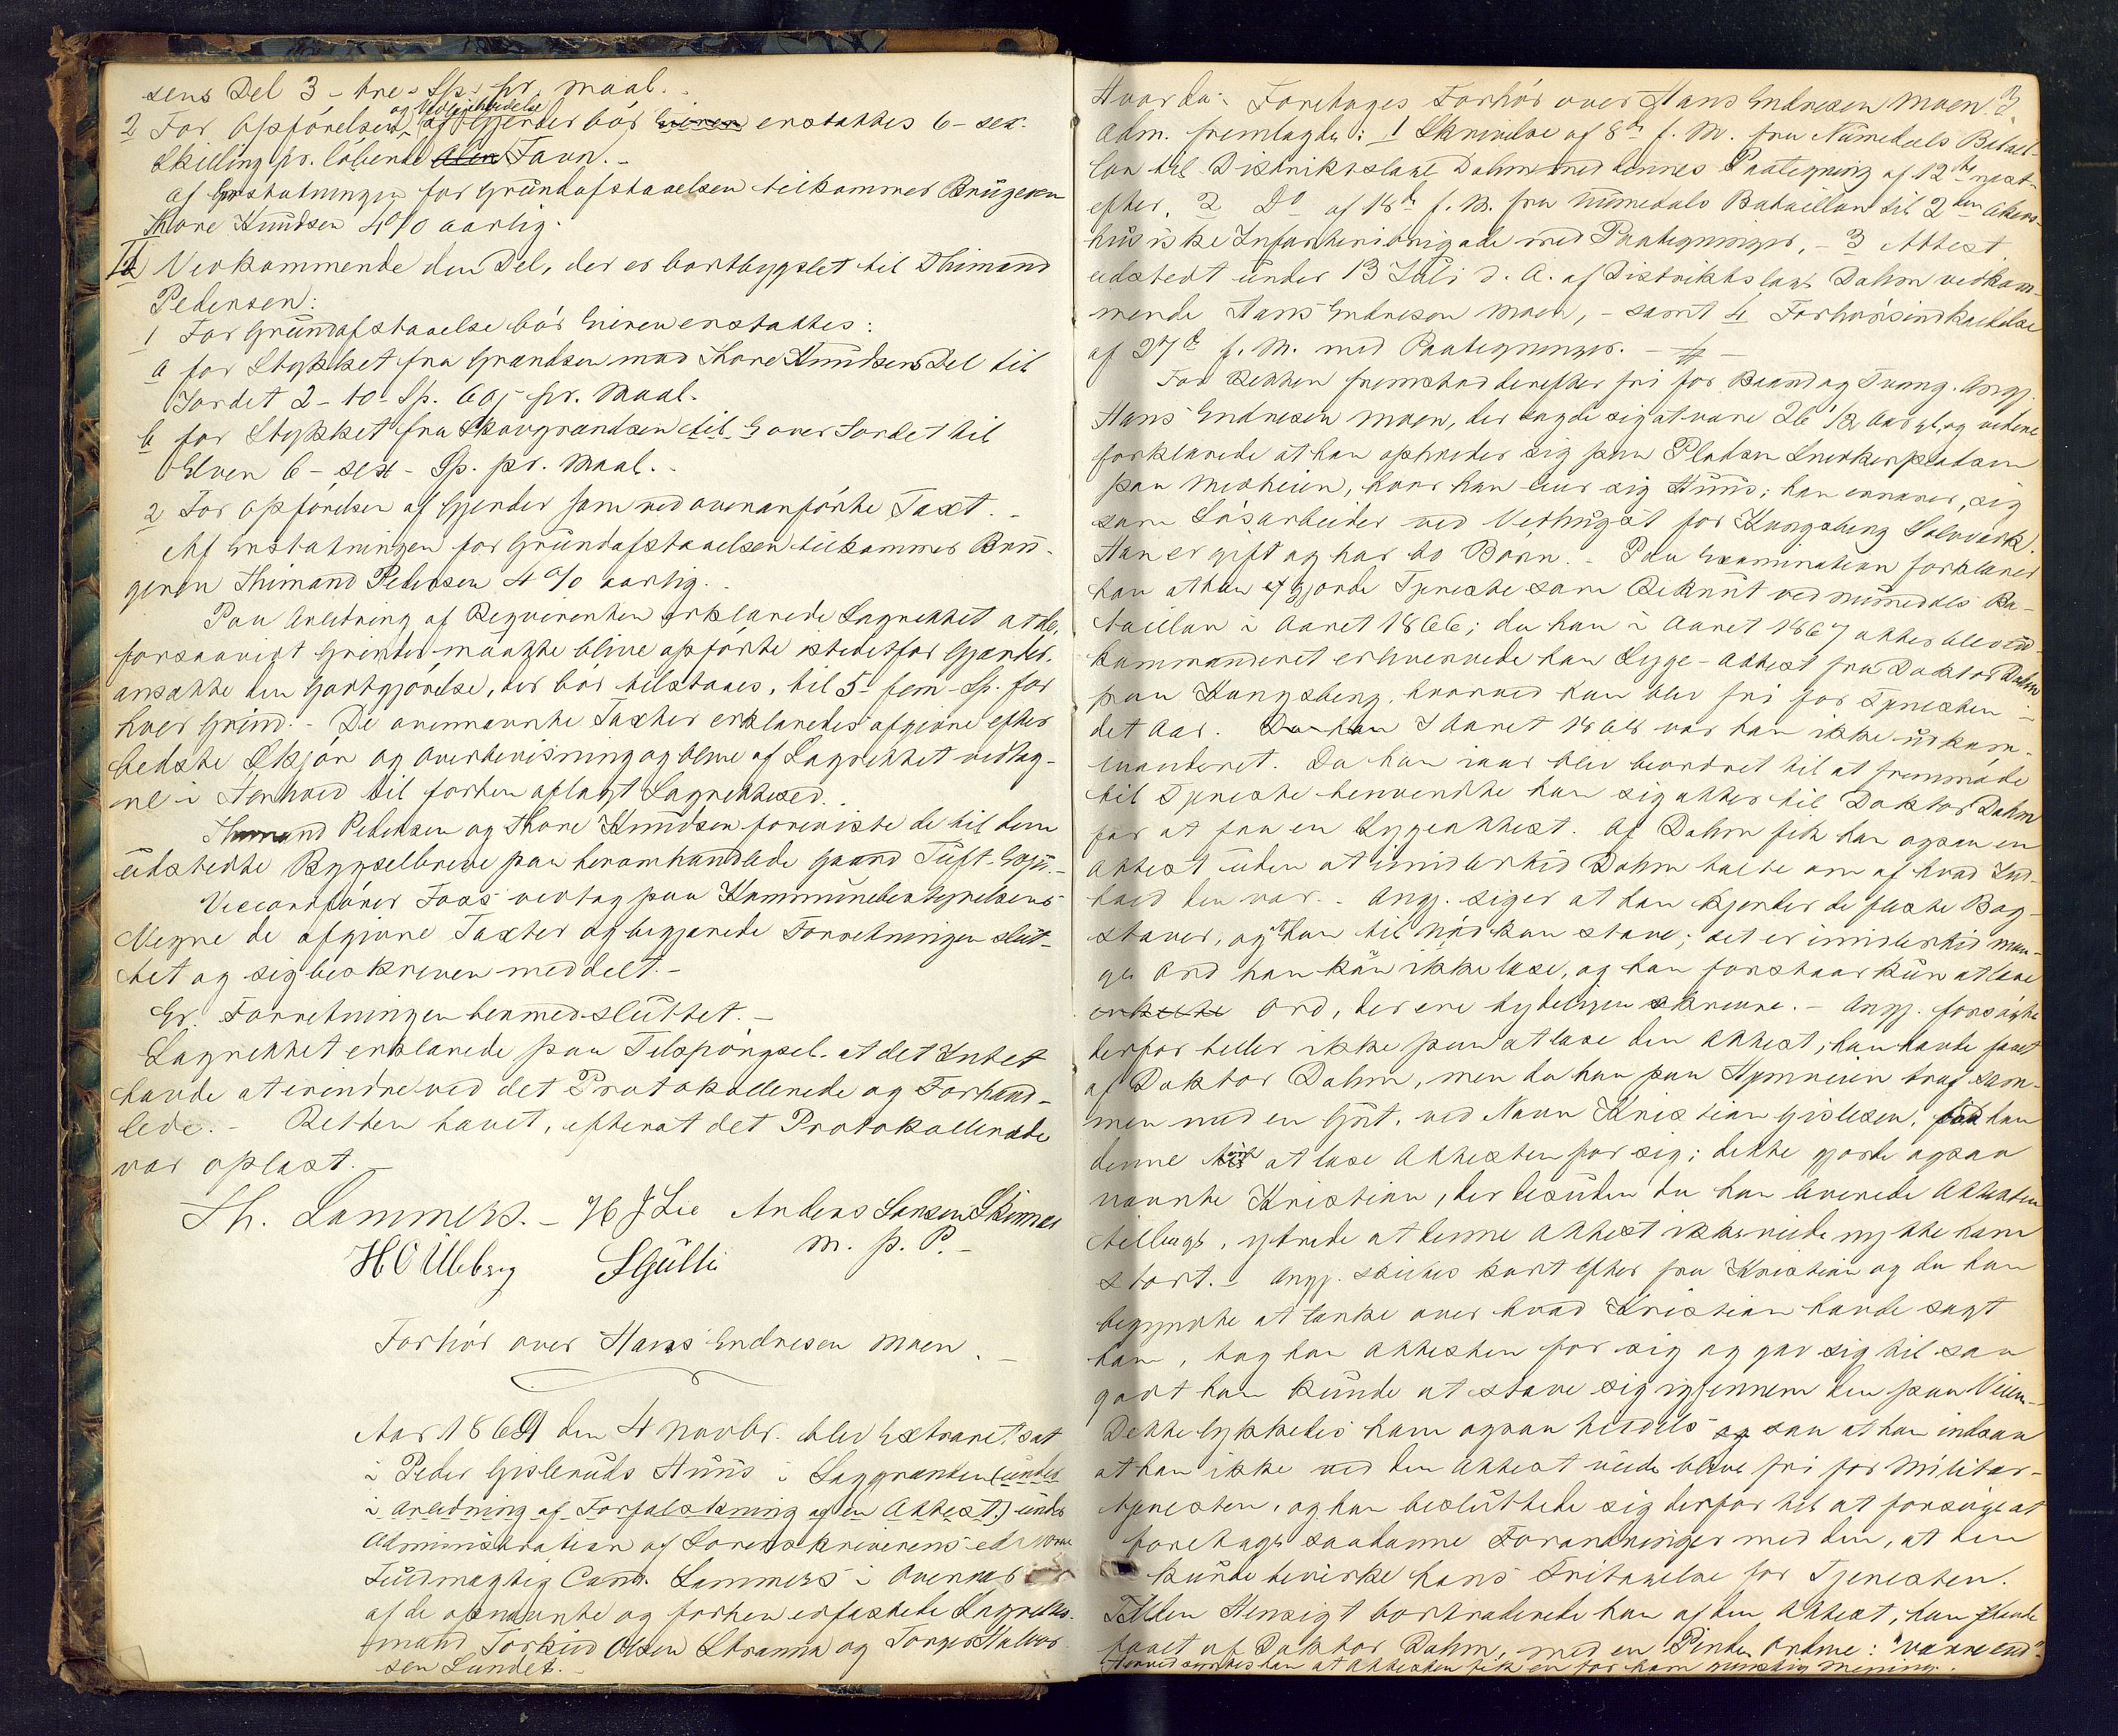 sens Del 3 - tre - Sp. pr. Maal. -
og Vedligeholdelse
2 For Opförelsen af Gjerder bör Eieren erstattes 6 - sex -
Skilling pr. löbende Alen Favn. -
Af Erstatningen for Grundafstaaelsen tilkommer Brugeren
Thore Knudsen 4 % aarlig.
II Vedkommende den Del, der er bortbygslet til Thimand
Pedersen:
1 For Grundafstaaelse bör Eieren erstattes:
a for Stykket fra Grændsen mod Thore Knudsens Del til
Jordet 2 - to - Sp. 60 pr. Maal.
b for Stykket fra Skovgrændsen til & over Jordet til
Elven 6 - sex - Sp. pr. Maal. -
2 For Opförelsen af Gjerder som ved ovenanförte Taxt. -
Af Erstatningen for Grundafstaaelsen tilkommer Bru-
geren Thimand Pedersen 4 % aarlig. -
Paa Anledning af Reqvirenten erklærede Lagrettet at de,
forsaavidt Grinder maatte blive opförte istedetfor Gjerder,
ansatte den Godtgjörelse, der bör tilstaaes, til 5 - fem - Sp. for
hver Grind. - De ovennævnte Taxter erklæredes afgivne efter
bedste Skjön og Overbeviisning og bleve af Lagrettet vedtag-
ne i Henhold til forhen aflagt Lagrettesed. -
Thimand Pedersen og Thore Knudsen foreviste de til dem
udstedte Bygselbreve paa heromhandlede Gaard Tuft
Viceordförer Foss vedtog paa Kommunebestyrelsens
Vegne de afgivne Taxter og begjærede Forretningen slut-
tet og sig beskreven meddelt. -
Er Forretningen hermed sluttet. -
Lagrettet erklærede paa Tilspörgsel at det Intet
havde at erindre ved det Protokollerede og Forhand-
lede. - Retten hævet, efterat det Protokollerede
var oplæst. -
Th. Lammers. - H J Lie Anders Larsen Skinnes
m. p. P. -
H O Ulleberg
Forhör over Hans Endresen Moen. -
Aar 1869 den 4 Novbr. blev Extraret sat
i Peder Gisleruds Huus i Laggrænden (
i Anledning af Forfalskning af en Attest.) under
Administration af Sorenskriverens edsvorne
Fuldmægtig Cand. Lammers i Overvær
af de opnævnte og forhen edfæstede Lagrettes-
mænd Torkild Olsen Stranna og Torger Halvor-
sen Lundet. -
Hvorda: Foretoges Forhör over Hans Endresen Moen.
Adm. fremlagde: 1 Skrivelse af 8de f. M. fra Numedals Batail-
lon til Distriktslæge Dahm med dennes Paategning af 12te næst-
efter, 2 Do af 18de f. M. fra Numedals Bataillon til 2den Akers-
husiske Infanteribrigade med Paategninger, - 3 Attest
udstedt under 13 Juli d. A. af Distriktslæge Dahm vedkom-
mende Hans Endresen Moen, - samt 4 Forhörsindkaldelse
af 27de f. M. med Paategninger. -
For Retten fremstod derefter fri for Baand og Tvang Angj.
Hans Endresen Moen, der sagde sig at være 26 1/2 Aar gl, og videre
forklarede at han opholder sig paa Pladsen Snekkerpladsen
paa Medheien, hvor han eier sig Huus; han ernærer sig
som Lösarbeider ved Vedhugst for Kongsberg Sölvværk.
Han er gift og har to Börn. - Paa Examination forklarer
han at han gjorde Tjeneste som Rekrut ved Numedals Ba-
taillon i Aaret 1866; da han i Aaret 1867 atter blev ud-
kommanderet erhvervede han Læge-Attest fra Doktor Dahm
paa Kongsberg, hvorved han blev fri for Tjenesten i
det Aar. Da han I Aaret 1868 var han ikke udkom-
manderet. Da han iaar blev beordret til at fremmöde
til Tjeneste henvendte han sig atter til Doktor Dahm
for at faa en Lægeattest. Af Dahm fik han ogsaa en
Attest uden at imidlertid Dahm talte om af hvad Ind-
hold den var. - Angj. siger at han kjender de fleste Bog-
staver, og at han til Nöd kan stave; det er imidlertid man-
ge Ord han kan ikke læse, og han forstaar kun at læse
enkelte Ord, der ere tydeligen skrevne. - Angj. forsögte
derfor heller ikke paa at læse den Attest, han havde faaet
af Doktor Dahm, men da han paa Hjemveien traf sam-
men med en Gut, ved Navn Kristian Gislesen, bad han
denne at læse Attesten for sig; dette gjorde ogsaa
nævnte Kristian, der desuden da han leverede Attesten
tilbage, yttrede at denne Attest ikke vilde nytte ham
stort. - Angj. skiltes kort efter fra Kristian og da han
begyndte at tænke over hvad Kristian havde sagt
ham, tog han Attesten for sig og gav sig til saa
godt han kunde at stave sig igjennem den paa Veien. -
Dette lykkedes ham ogsaa heldels og saa at han indsaa
at han ikke ved den Attest vilde blive fri for Militær-
tjenesten, og han besluttede sig derfor til at forsöge at
foretage saadanne Forandringer med den, at den
kunde bevirke hans Fritagelse for Tjenesten.
I den Hensigt bortraderede han af den Attest, han havde
faaet af Doktor Dahm, med en Pinde, Ordene: "være end".
Herved syntes han at Attesten fik en for ham gunstig Mening. -